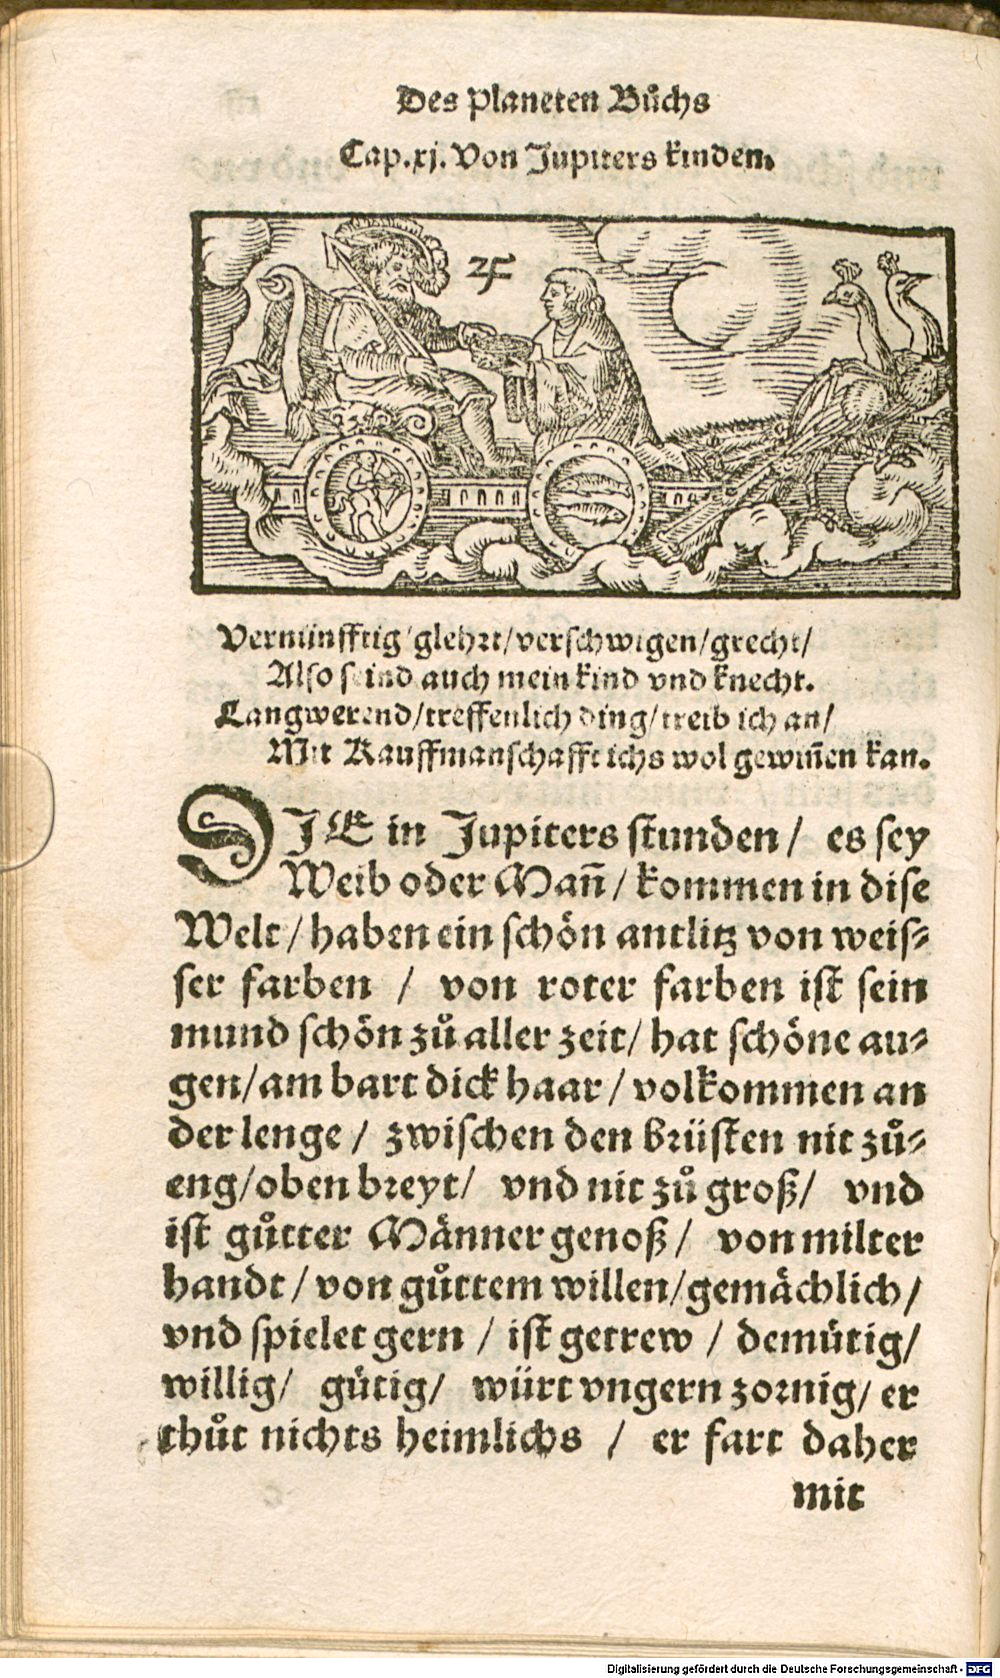 Des Planeten Bůchs
Cap.xj. Von Jupiters kinden.
♃
Vernünfftig/glehrt/verschwigen/grecht/
Also seind auch mein kind vnd knecht.
Langwerend/treffenlich ding/treib ich an/
Mit Kauffmanschafft ichs wol gewiñen kan.
DJE in Jupiters stunden/ es sey
Weib oder Mañ/ kommen in dise
Welt/ haben ein schön antlitz von weis-
ser farben / von roter farben ist sein
mund schön zů aller zeit/ hat schöne au-
gen/ am bart dick haar/ volkommen an
der lenge/ zwischen den brüsten nit zů-
eng/ oben breyt/ vnd nit zů groß/ vnd
ist gůtter Männer genoß/ von milter
handt/ von gůttem willen/ gemächlich/
vnd spielet gern / ist getrew / demütig/
willig/ gütig/ würt vngern zornig/ er
thůt nichts heimlichs / er fart daher
mit
Digitalisierung gefördert durch die Deutsche Forschungsgemeinschaft - DFG